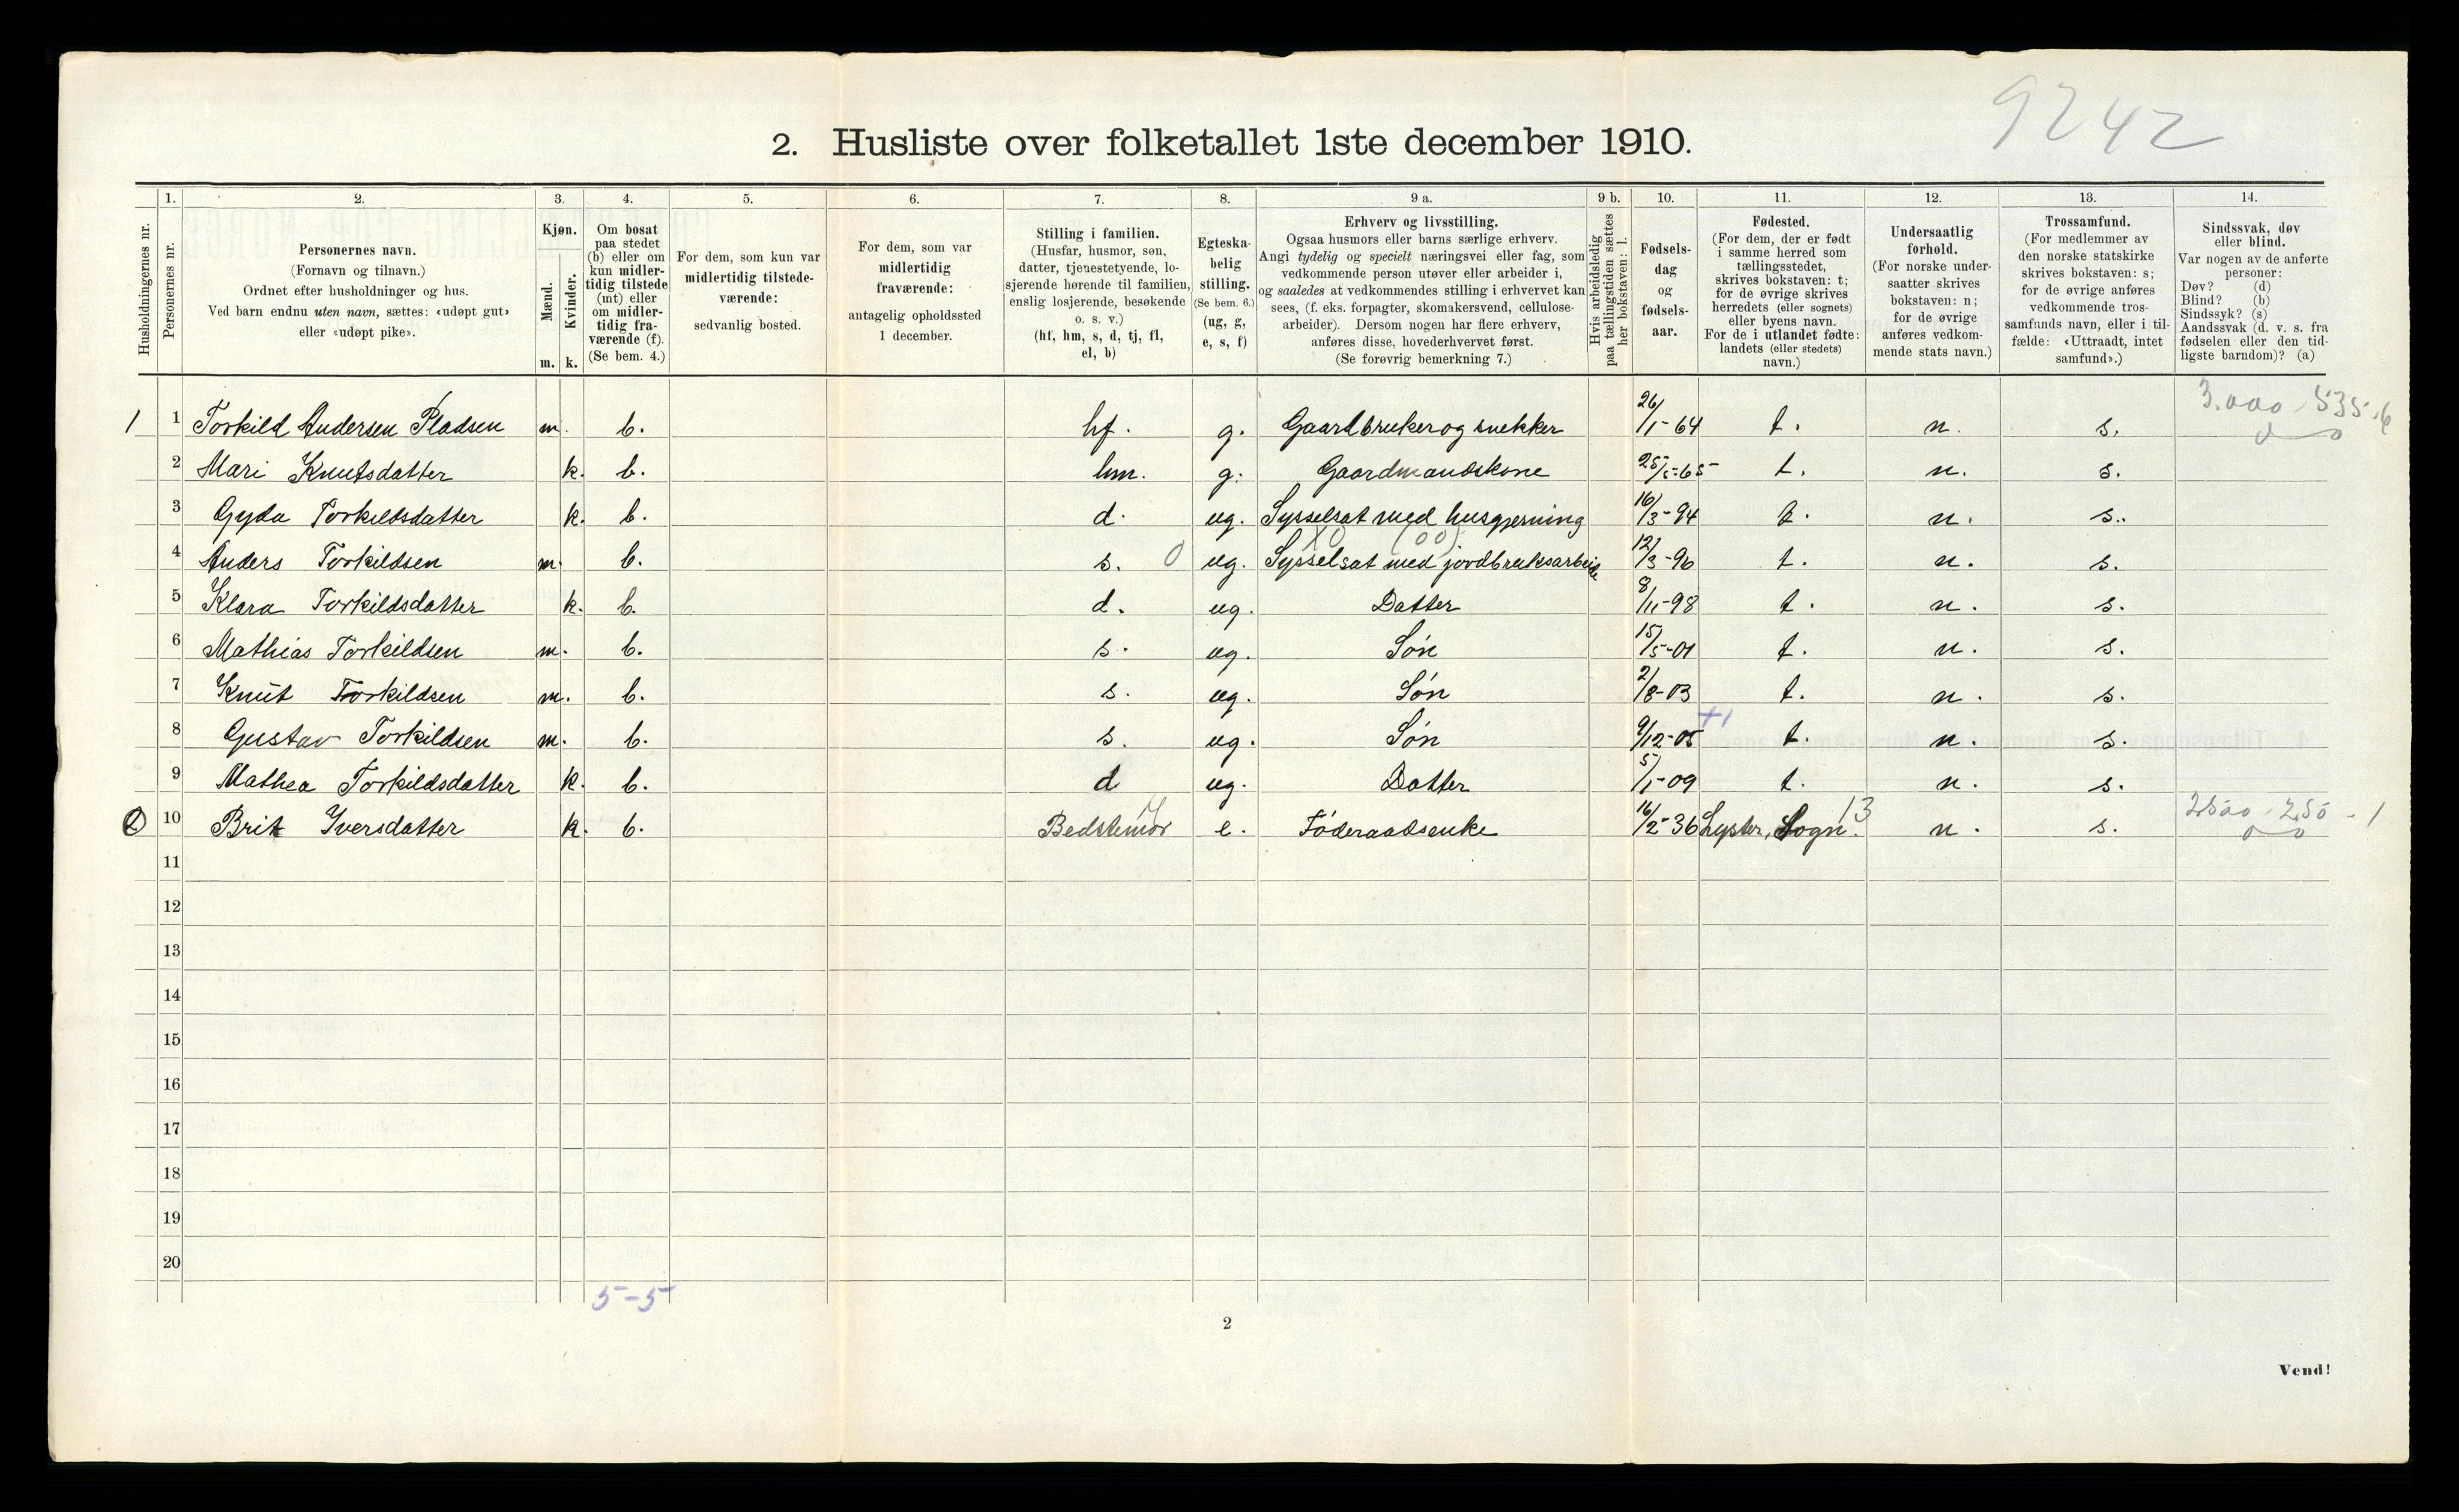 9242
2. Husliste over folketallet 1ste december 1910.
Husholdningernes nr.
1.
Personernes nr.
2.
Personernes navn.
(Fornavn og tilnavn.)
Ordnet efter husholdninger og hus.
Ved barn endnu uten navn, sættes: «udøpt gut»
eller «udøpt pike».
3.
Kjøn.
Mænd.
Kvinder.
m. k.
4.
Om bosat
paa stedet
(b) eller om
kun midler-
tidig tilstede
(mt) eller
om midler-
tidig fra-
værende (f).
(Se bem. 4.)
5.
For dem, som kun var
midlertidig tilstede-
værende:
sedvanlig bosted.
6.
For dem, som var
midlertidig
fraværende:
antagelig opholdssted
1 december.
7.
Stilling i familien.
(Husfar, husmor, søn,
datter, tjenestetyende, lo-
sjerende hørende til familien,
enslig losjerende, besøkende
o. s. v.)
(hf, hm, s, d, tj, fl,
el, b)
8.
Egteska-
belig
stilling.
(Se bem. 6.)
(ug, g,
e, s, f)
9 a.
Erhverv og livsstilling.
Ogsaa husmors eller barns særlige erhverv.
Angi tydelig og specielt næringsvei eller fag, som
vedkommende person utøver eller arbeider i,
og saaledes at vedkommendes stilling i erhvervet kan
sees, (f. eks. forpagter, skomakersvend, cellulose-
arbeider). Dersom nogen har flere erhverv,
anføres disse, hovederhvervet først.
(Se forøvrig bemerkning 7.)
9 b.
Hvis arbeidsledig
paa tællingstiden sættes
her bokstaven: l.
10.
Fødsels-
dag
og
fødsels-
aar.
11.
Fødested.
(For dem, der er født
i samme herred som
tællingsstedet,
skrives bokstaven: t;
for de øvrige skrives
herredets (eller sognets)
eller byens navn.
For de i utlandet fødte:
landets (eller stedets)
navn.)
12.
Undersaatlig
forhold.
(For norske under-
saatter skrives
bokstaven: n;
for de øvrige
anføres vedkom-
mende stats navn.)
13.
Trossamfund.
(For medlemmer av
den norske statskirke
skrives bokstaven: s;
for de øvrige anføres
vedkommende tros-
samfunds navn, eller i til-
fælde: «Uttraadt, intet
samfund».)
14.
Sindssvak, døv
eller blind.
Var nogen av de anførte
personer:
Døv? (d)
Blind? (b)
Sindssyk? (s)
Aandssvak (d. v. s. fra
fødselen eller den tid-
ligste barndom)? (a)
1 1 Torkild Andersen Pladsen m. b. hf. g. Gaardbruker og snekker 26/1-64 t. n. s. 3.000 - 535 - 6
2 Mari Knutsdatter k. b. hm. g. Gaardmandskone 25/5-65 t. n. s.
3 Gyda Torkildsdatter k. b. d. ug. Sysselsat med husgjerning 16/3-94 t. n. s.
X0 (00)
4 Anders Torkildsen m. b. s. 0 ug. Sysselsat med jordbruksarbeide 12/3-96 t. n. s.
5 Klara Torkildsdatter k. b. d. ug. Datter 8/11-98 t. n. s.
6 Mathias Torkildsen m. b. s. ug. Søn 15/5-01 t. n. s.
7 Knut Torkildsen m. b. s. ug. Søn 2/8-03 t. n. s.
8 Gustav Torkildsen m. b. s. ug. Søn 9/12-05 +1 t. n. s.
9 Mathea Torkildsdatter k. b. d ug. Datter 5/1-09 t. n. s.
2 10 Brit Iversdatter k. b. Bedstemor e. Føderaadsenke 16/2-36 Lyster, Sogn. 13 n. s. 2500 - 250 - 1
11
12
13
14
15
16
17
18
19
20
5-5
2
Vend!